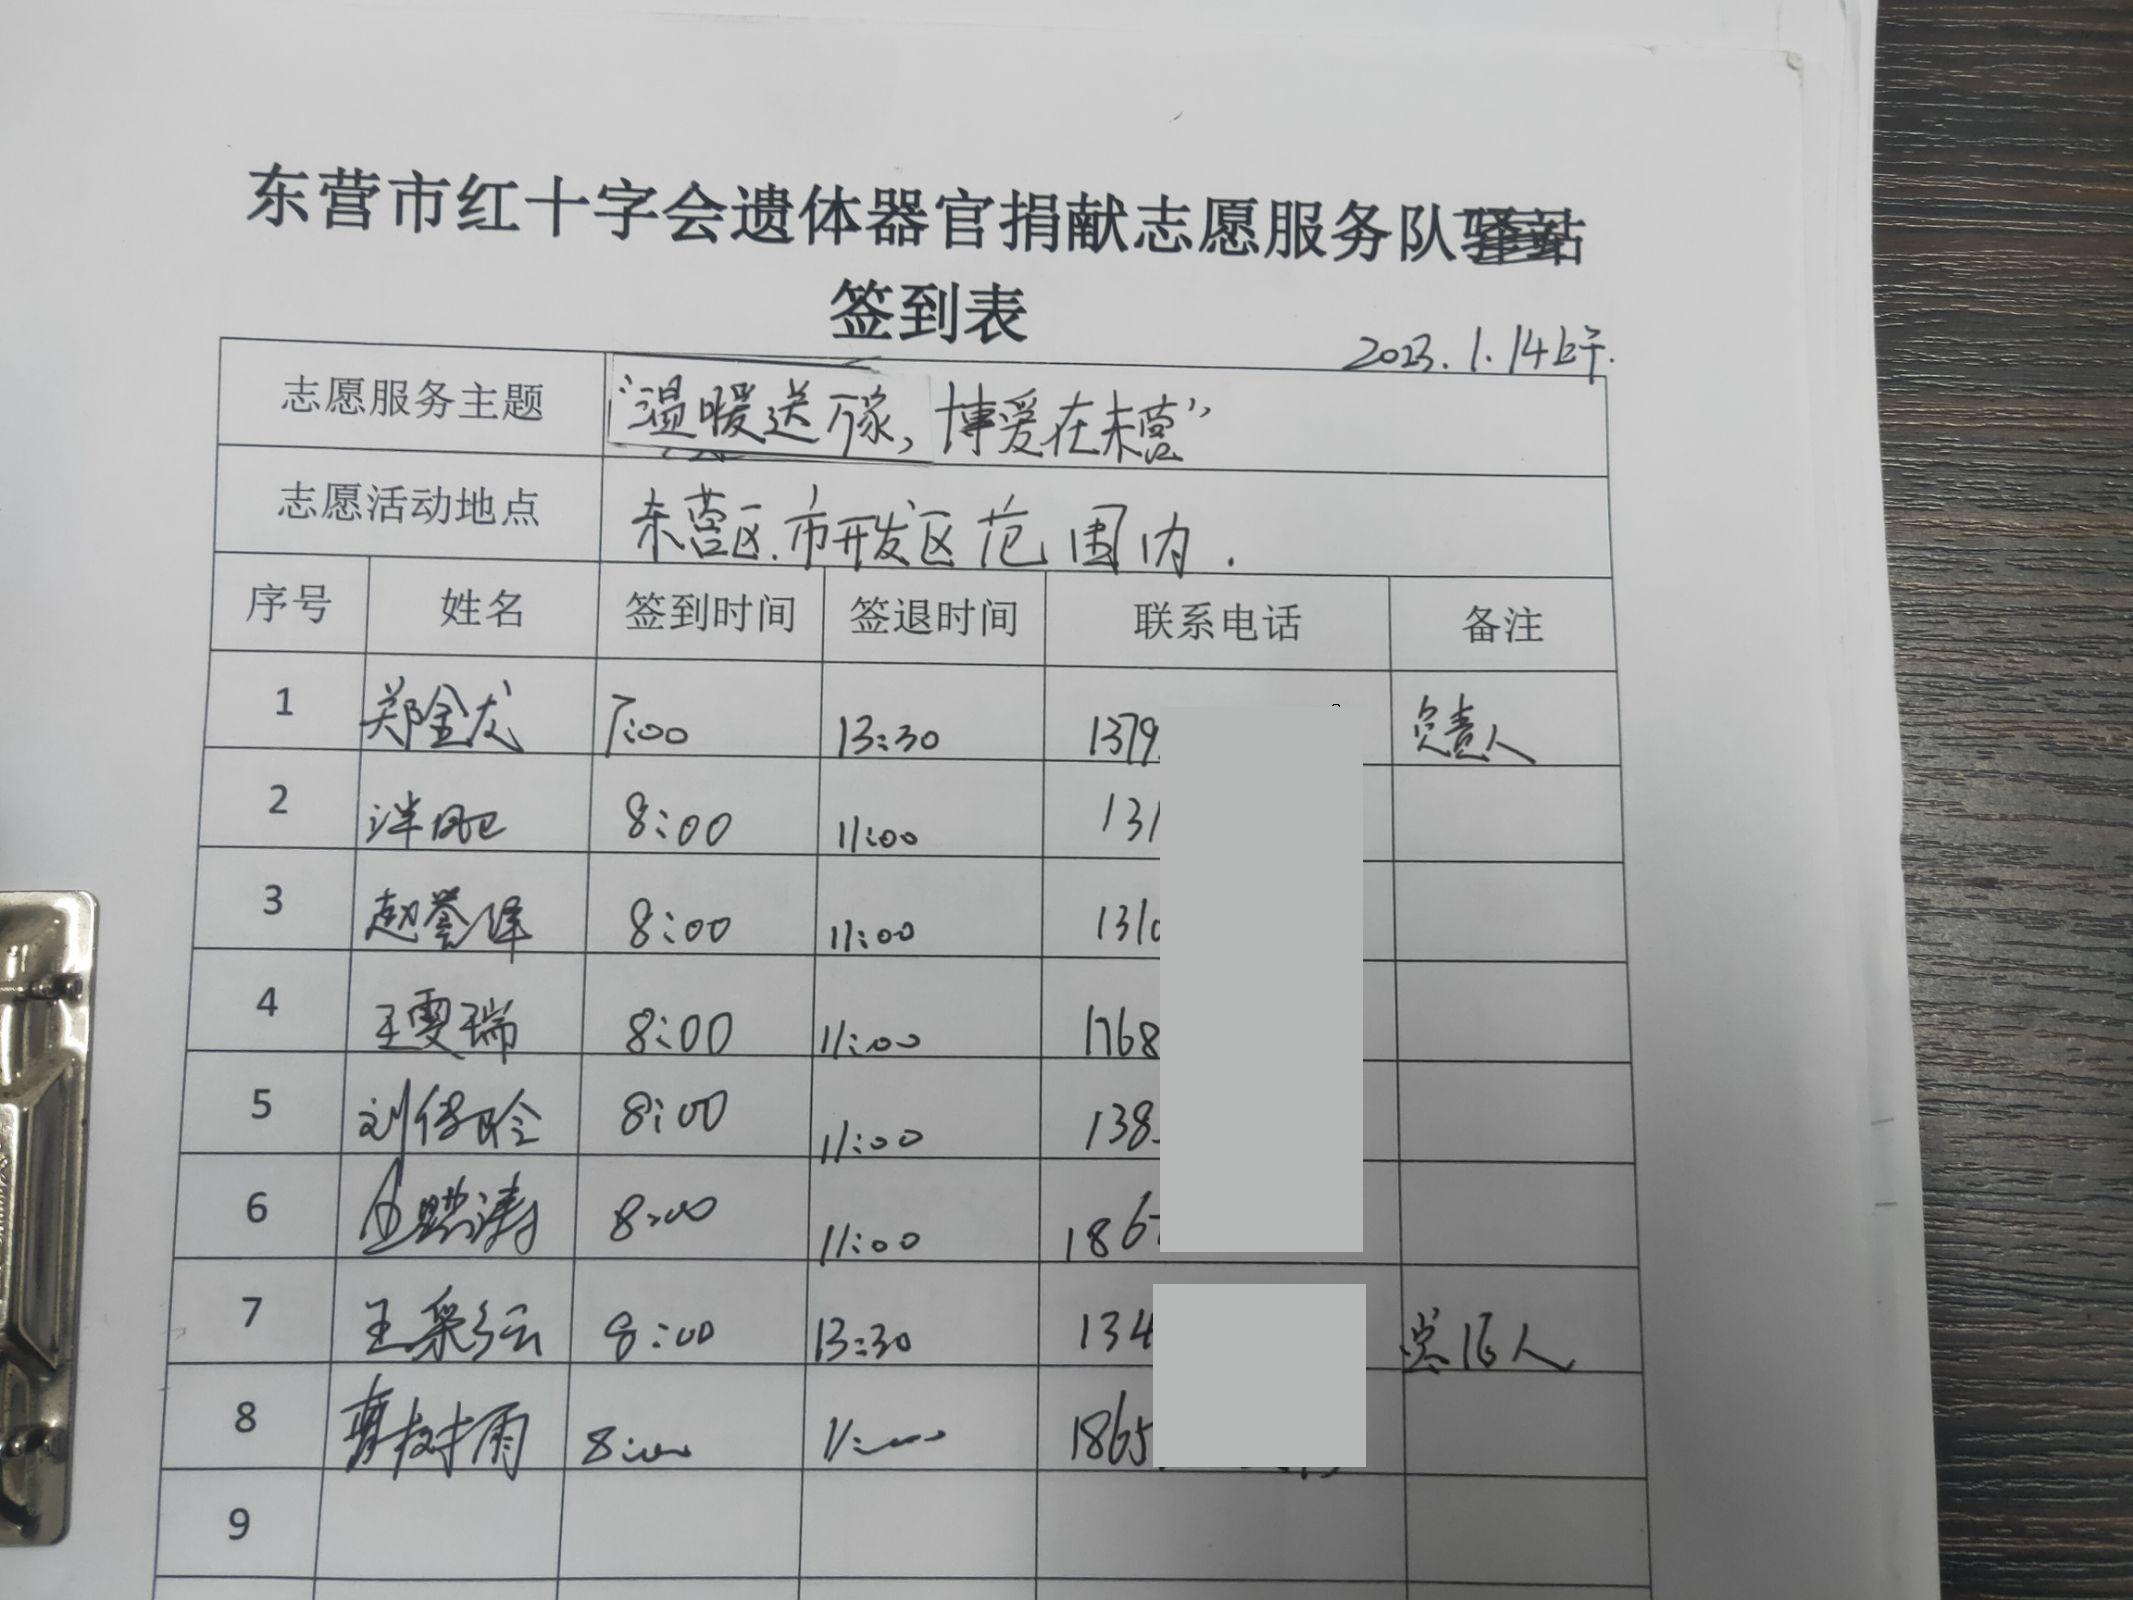 东营市红十字会遗体器官捐献志愿服务队驿站
签到表
2023.1.14上午.
志愿服务主题 “温暖送万家，博爱在东营”
志愿活动地点 东营区.市开发区范围内.
序号 姓名 签到时间 签退时间 联系电话 备注
1 郑金龙 7:00 13:30 1379 负责人
2 8:00 11:00 131
3 赵誉泽 8:00 11:00 131
4 王雯瑞 8:00 11:00 1768
5 刘保聆 8:00 11:00 138
6 8:00 11:00 186
7 王彩云 8:00 13:30 134 负责人
8 曹树雨 8:00 11:00 1865
9